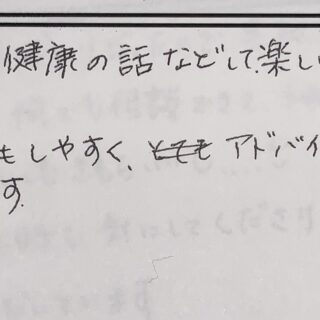 健康の話などして、楽し
もしやすく、とても アドバイ
す。